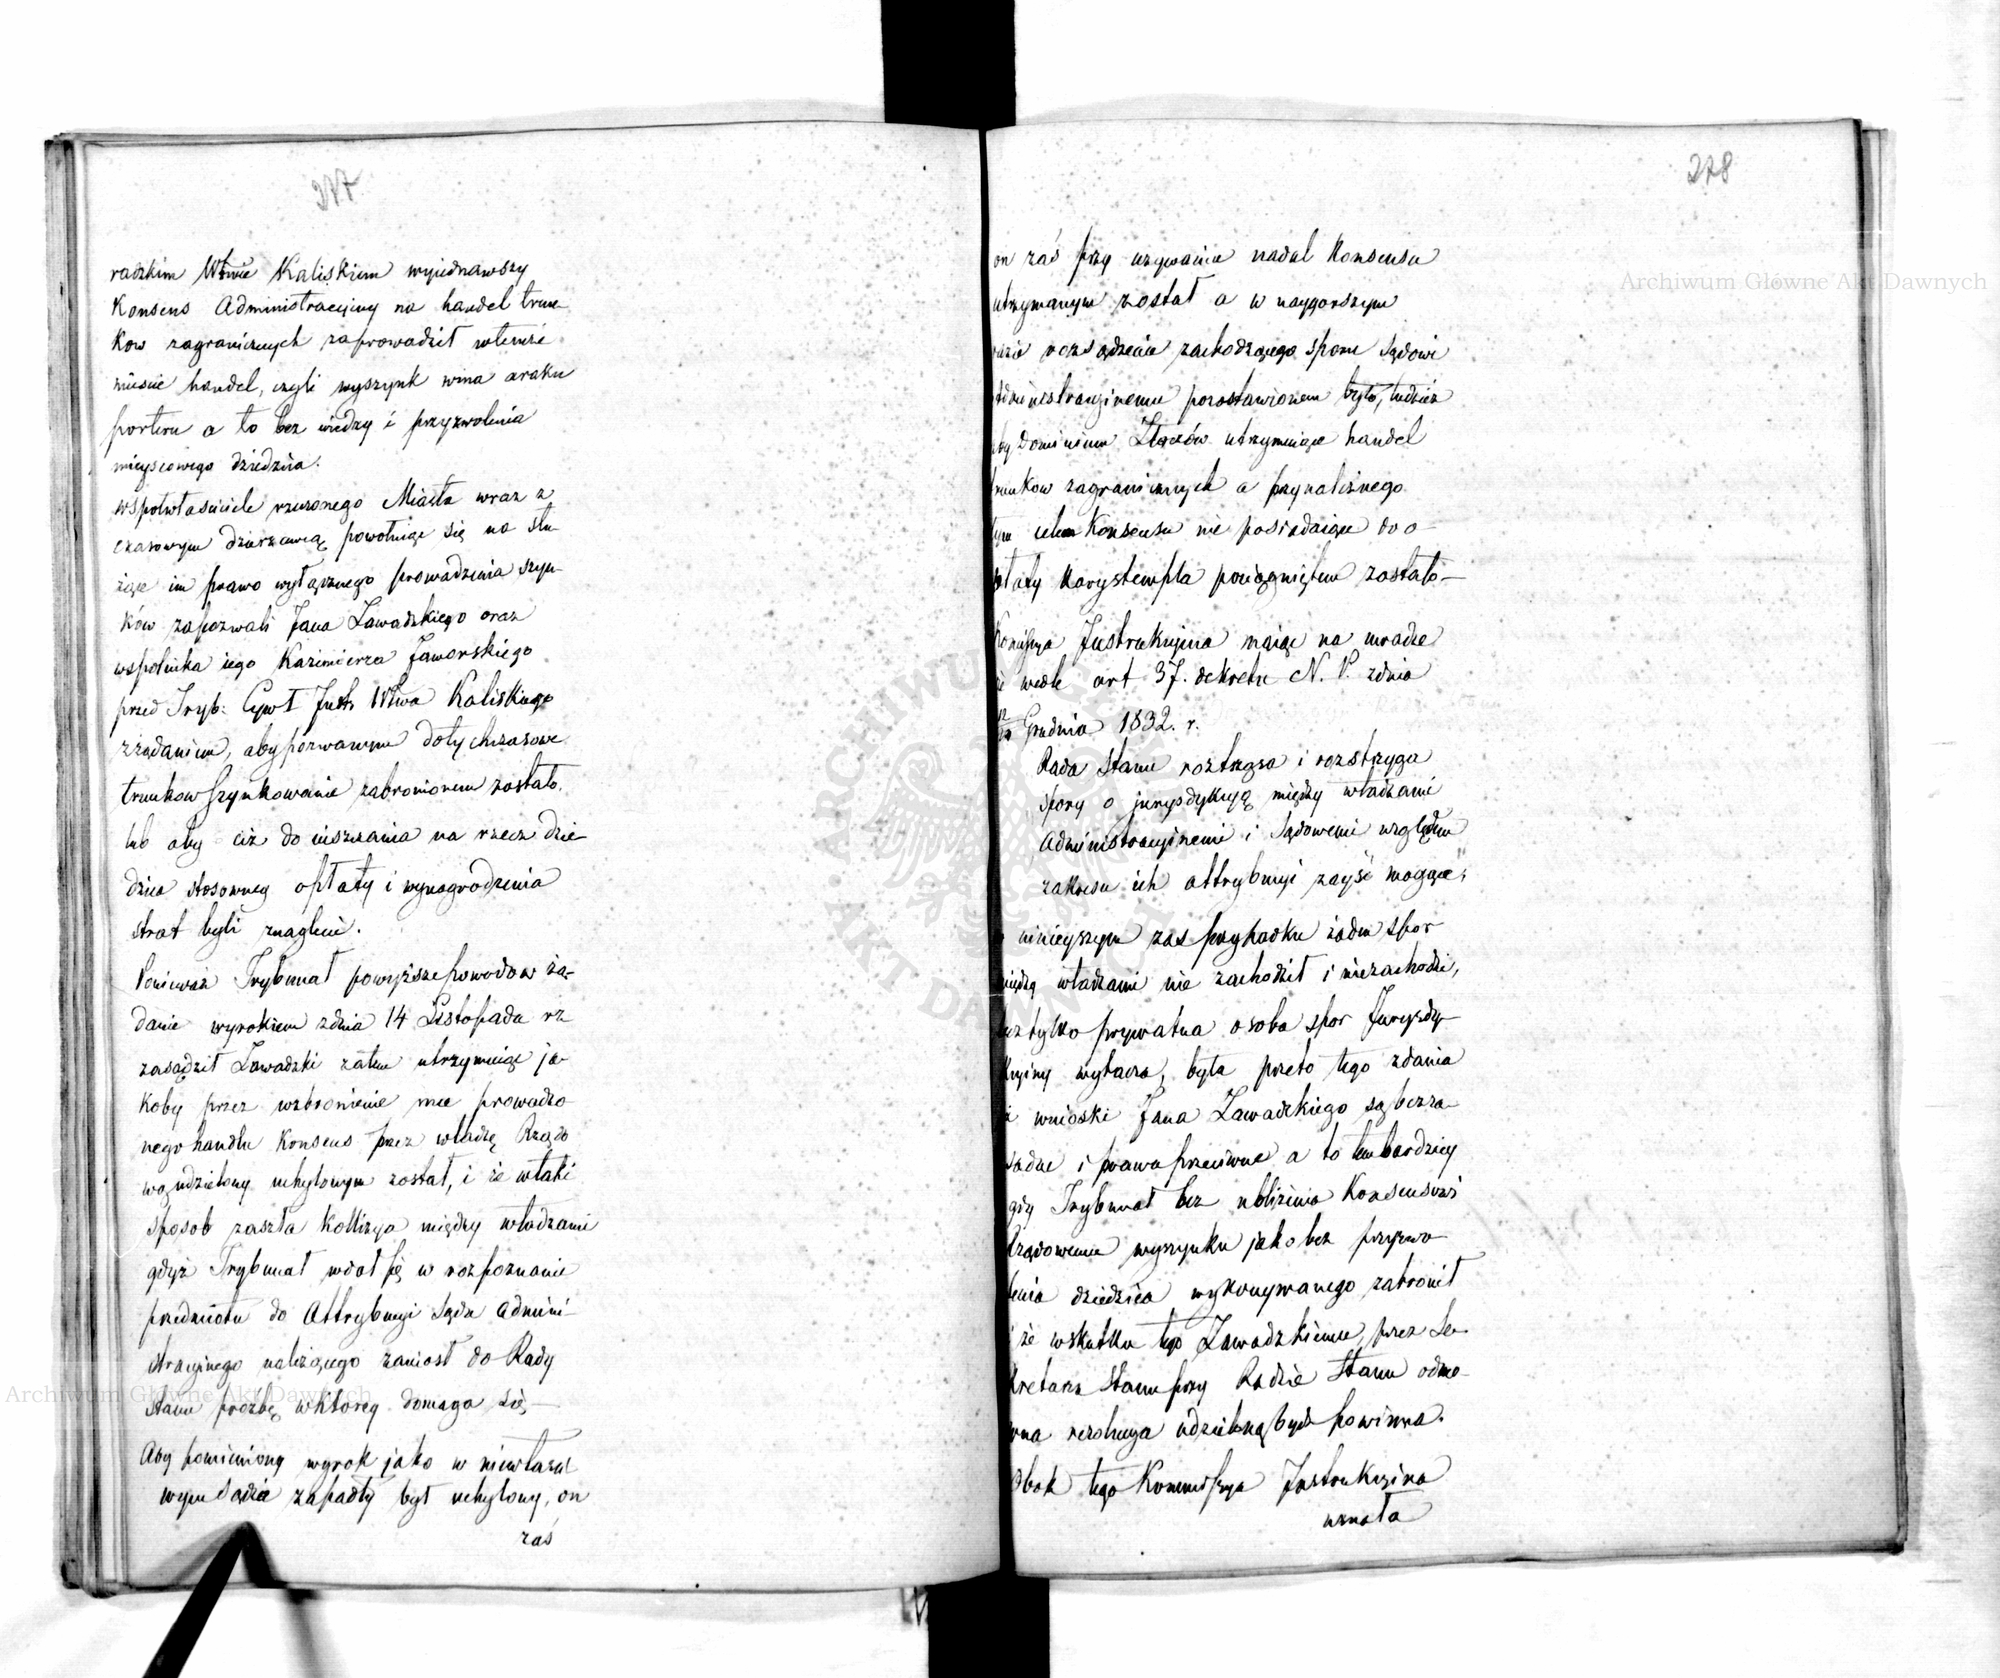 277
radzkim Wtwie Kaliskiem wyiednawszy
Konsens Administracyiny na handel trun-
kow zagranicznych zaprowadził wtemże
miescie handel, czyli wyszynk wina araku
porteru a to bez wiedzy i przyzwolenia
mieyscowego dziedzica.
wspołwłasciciele rzeczonego Miasta wraz z
czasowym dzierzawcą powołuiąc się na słu-
żące im prawo wyłącznego prowadzenia szyn-
ków zapozwali Jana Zawadzkiego oraz
wspolnika iego Kazimierza Jaworskiego
przed Tryb: Cywl I Inst: Wtwa Kaliskiego
zżądaniem, aby pozwanym dotychczasowe
trunkow szynkowanie zabronionem zostało,
lub aby ciż do uiszczania na rzecz dzie-
dzica stosowney opłaty i wynagrodzenia
strat byli znagleni.
Ponieważ Trybunał powyższe powodow żą-
danie wyrokiem zdnia 14 Listopada rz
zasądził Zawadzki zatem utrzymuiąc ja-
koby przez wzbronienie mu prowadzo
nego handlu Konsens przez władzę Rządo
wą udzielony uchylonym został, i że wtaki
sposob zaszła Kollizya między władzami
gdyż Trybunał wdał się w rozpoznanie
przedmiotu do Attrybucyi Sądu admini-
stracyinego należącego zaniosł do Rady
Stanu prozbę wktorey domaga się,—
Aby pomieniony wyrok jako w niewłasci
wym Sądzie zapadły był uchylony, on
zaś
278
on zaś przy używaniu nadal Konsensu
utrzymanym został a w naygorszym
razie rozsądzenie zachodzącego sporu Sądowi
Administracyinemu pozostawionem było, tudzież
aby Dominium utrzymuiące handel
trunkow zagranicznych a przynależnego
tym celem Konsensu nie posiadaiące do o-
płaty Karystempla pociągniętem zostało—
Komissya Instrukcyina maiąc na uwadze
że wedle art 37. dekretu N. P. zdnia
12/24 Grudnia 1832. r.
Rada Stanu roztrząsa i rozstrzyga
spory o jurysdykcyą między władzami
Administracyinemi i Sądowemi względem
zakresu ich attrybucyi zayść mogące,
w ninieyszym zas przypadku żaden spor
między władzami nie zachodził i niezachodzi,
lecz tylko prywatna osoba spor Jurysdy-
kcyiny wytacza, była przeto tego zdania
że wnioski Jana Zawadzkiego są bezza-
sadne i prawu przeciwne a to tembardziey
gdy Trybunał bez ubliżenia Konsensowi
Rządowemu wyszynku jako bez przyzwo
lenia dziedzica wykonywanego zabronił
i że wskutku tego Zawadzkiemu, przez Se-
kretarza Stanu przy Radzie Stanu odmo-
wna rezolucya udzieloną bydź powinna.
Obok tego Kommissya Instrukcyina
uznała
Archiwum Główne Akt Dawnych
Archiwum Główne Akt Dawnych
ARCHIWUM GŁÓWNE AKT DAWNYCH